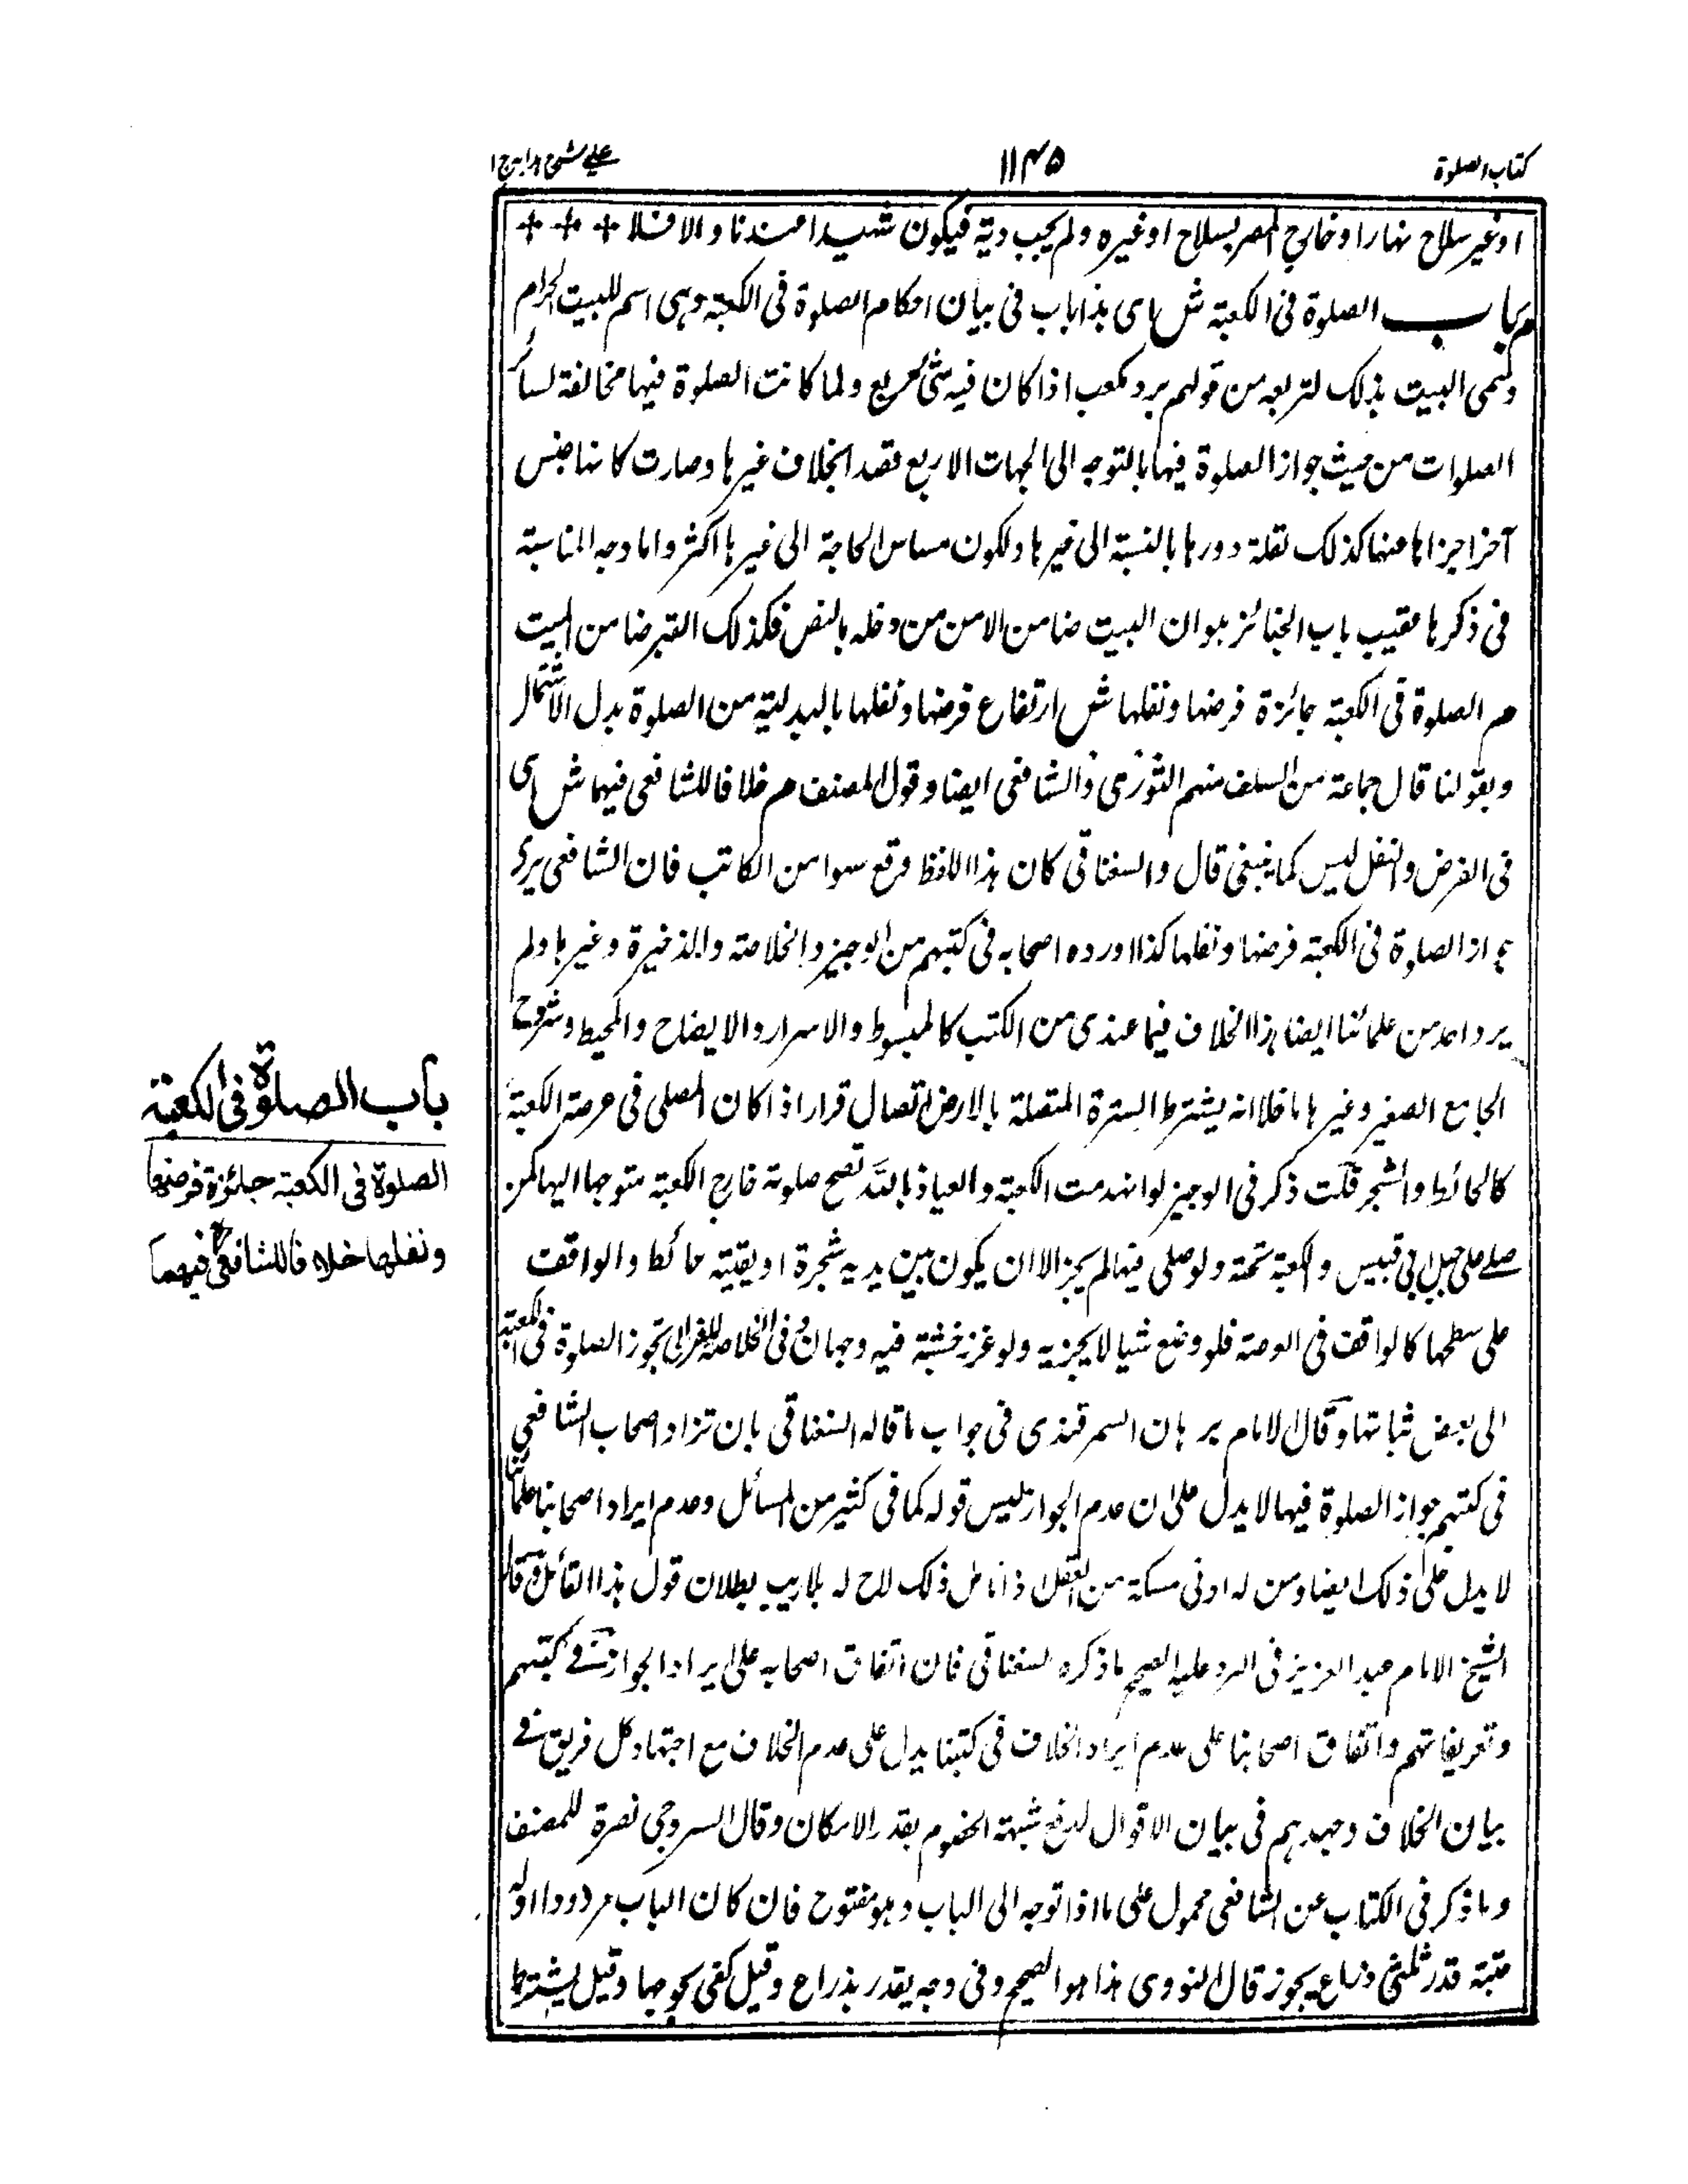 كتاب الصلوة
١١٤٥
على شرح هدايه ج ١
او غير سلاح نهارا او خارج المصر بسلاح او غيره ولم يجب دية فيكون شهيدا عندنا والا فلا + + +
م باب الصلوة فى الكعبة ش اى هذا باب فى بيان احكام الصلوة فى الكعبة وهى اسم للبيت الحرام
وسمى البيت بذلك لتربعه من قولهم برد مكعب اذا كان فيه شئ مربع ولما كانت الصلوة فيها مخالفة لسائر
الصلوات من حيث جواز الصلوة فيها بالتوجه الى الجهات الاربع قصد الخلاف غيرها وصارت كانها جنس
آخر اخرها منها كذلك لقلة دورها بالنسبة الى غيرها ولكون مساس الحاجة الى غيرها اكثر واما وجه المناسبة
فى ذكرها عقيب باب الجنائز هو ان البيت ضامن الامن من دخله بالنص فكذلك القبر ضامن الميت
م الصلوة فى الكعبة جائزة فرضها ونفلها ش ارتفاع فرضها ونفلها بالبدلية من الصلوة بدل الاشتمال
وبقولنا قال جماعة من السلف منهم الثورى والشافعى ايضا وقول المصنف م خلافا للشافعى فيهما ش اى
فى الفرض والنفل ليس كما ينبغى قال والسغناقى كان هذا اللفظ وقع سهوا من الكاتب فان الشافعى يرى
جواز الصلوة فى الكعبة فرضها ونفلها كذا اورده اصحابه فى كتبهم من الوجيز والخلاصة والذخيرة وغيرها ولم
يرد احد من علمائنا ايضا هذا الخلاف فيما عندى من الكتب كالمبسوط والاسرار والايضاح والمحيط وشروح
الجامع الصغير وغيرها ما خلا انه يشترط السترة المتصلة بالارض اتصال قرار اذا كان المصلى فى عرصة الكعبة
كالحائط والشجر قلت ذكر فى الوجيز لو انهدمت الكعبة والعياذ بالله تصح صلوته خارج الكعبة متوجها اليها كمن
صلے على جبل ابى قبيس والكعبة تحته ولو صلى فيها لم يجز الا ان يكون بين يديه شجرة او بقية حائط والواقف
على سطحها كالواقف فى العرصة فلو وضع شيا لا يجزيه ولو غرز خشبة فيه وجهان وفى الخلاصة للغزالى تجوز الصلوة فى الكعبة
الى بعض بنائها وقال الامام برهان السمرقندى فى جواب ما قاله السغناقى بان ايراد اصحاب الشافعى
فى كتبهم جواز الصلوة فيها لا يدل على ان عدم الجواز ليس قوله كما فى كثير من المسائل وعدم ايراد اصحابنا علمائنا
لا يدل على ذلك ايضا ومن له ادنى مسكة من العقل اذا تامل ذلك لاح له بلا ريب بطلان قول هذا القائل وقال
الشيخ الامام عبد العزيز فى الرد عليه الصحيح ما ذكره السغناقى فان اتفاق اصحابه على ايراد الجواز فے كتبهم
وتعريفاتهم واتفاق اصحابنا على عدم ايراد الخلاف فى كتبنا يدل على عدم الخلاف مع اجتهاد كل فريق فے
بيان الخلاف وجهدهم فى بيان الاقوال لدفع شبهة الخصوم بقدر الامكان وقال السروجى نصرة للمصنف
وما ذكر فى الكتاب عن الشافعى محمول على ما اذا توجه الى الباب وهو مفتوح فان كان الباب مردودا او له
عتبة قدر ثلثى ذراع يجوز قال النووى هذا هو الصحيح وفى وجه يقدر بذراع وقيل كفى شخوصها وقيل يشترط
باب الصلوة فى الكعبة
الصلوة فى الكعبة جائزة فرضها
ونفلها خلافا للشافعى فيهما